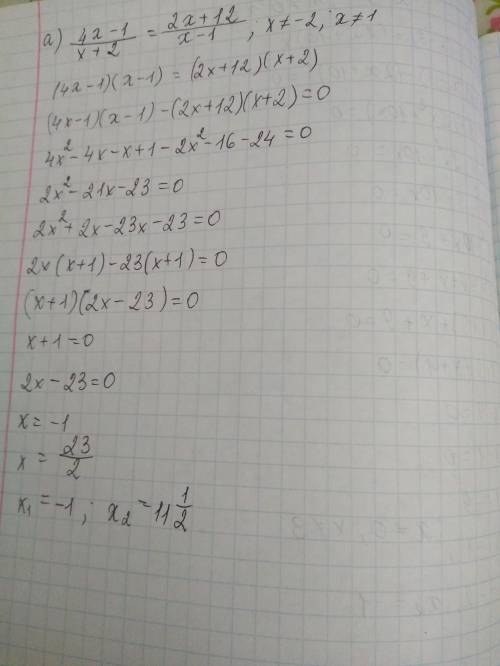 а) (4x-1)/(x+2) = (2x+12)/(x-1) ; x≠-2; x≠1
(4x-1)(x-1) = (2x+12)(x+2)
(4x-1)(x-1)-(2x+12)(x+2)=0
4x²-4x-x+1-2x²-16-24=0
2x²-21x-23=0
2x²+2x-23x-23=0
2x(x+1)-23(x+1)=0
(x+1)(2x-23)=0
x+1=0
2x-23=0
x=-1
x = 23/2
x₁=-1; x₂=11 1/2